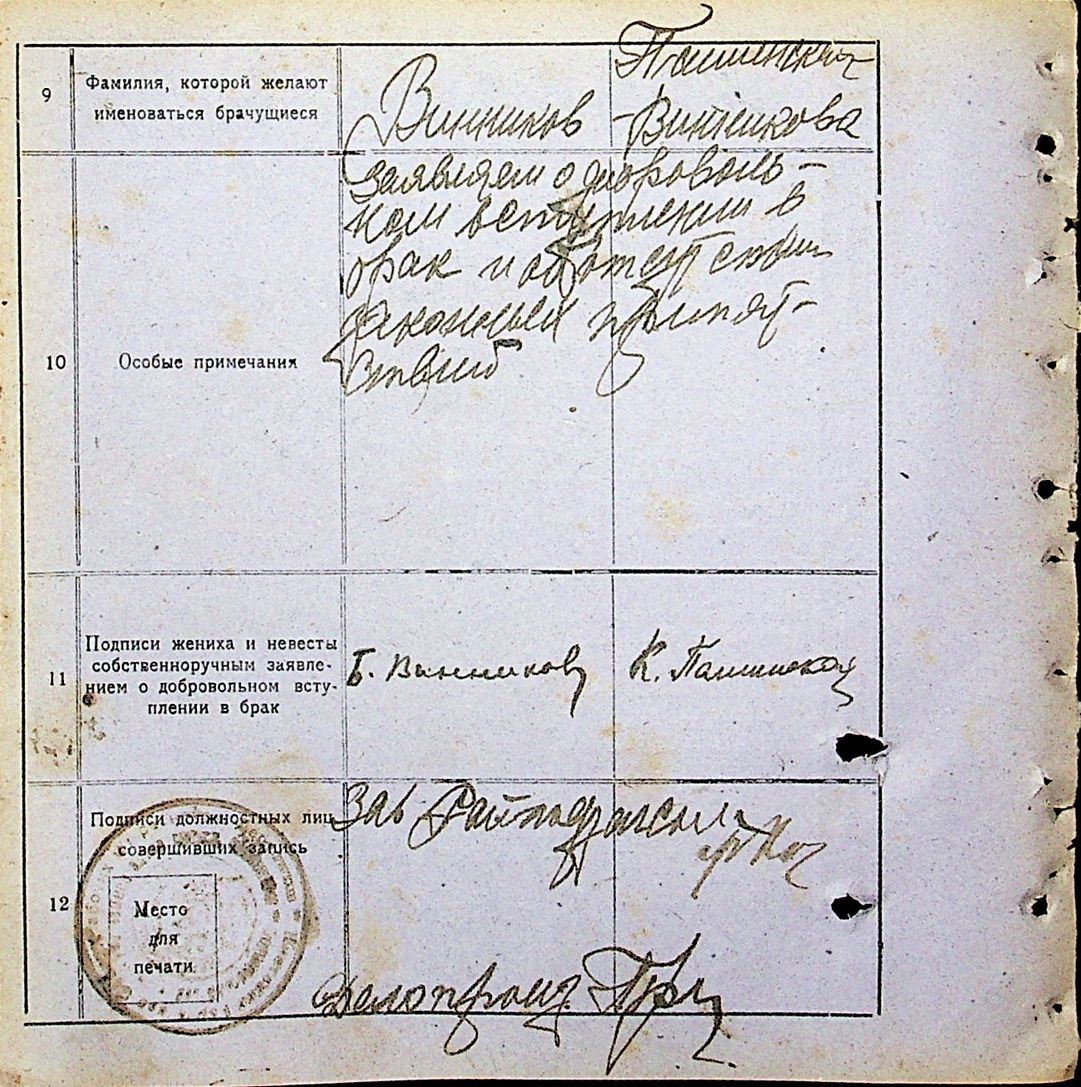 9
Фамилия, которой желают
именоваться брачущиеся
Винников
Пашинская
-Винникова
10
Особые примечания
заявляем о доброволь-
ном вступлении в
брак и об отсутствии
законных препят-
ствий
11
Подписи жениха и невесты
собственноручным заявле-
нием о добровольном всту-
плении в брак
Б. Винников
К. Пашинская
12
Подписи должностных лиц
совершивших запись
Место
для
печати
Зав Райподзагсом
Делопроизв.